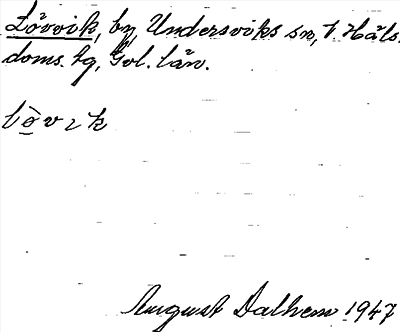 Lövvik, by, Undersviks sn, V. Häls.
doms. hg, Gvl. län.
lòvik
August Dalhem 1947